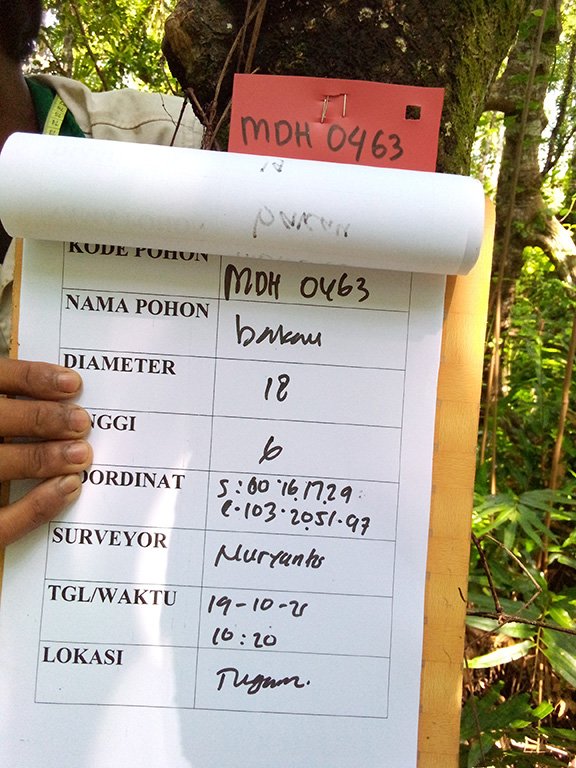 MDH 0463
KODE POHON MDH 0463
NAMA POHON bakau
DIAMETER 18
NGGI 6
OORDINAT S:00°16.17.29:
E.103.2051.97
SURVEYOR Nuryanto
TGL/WAKTU 19-10-21
10:20
LOKASI